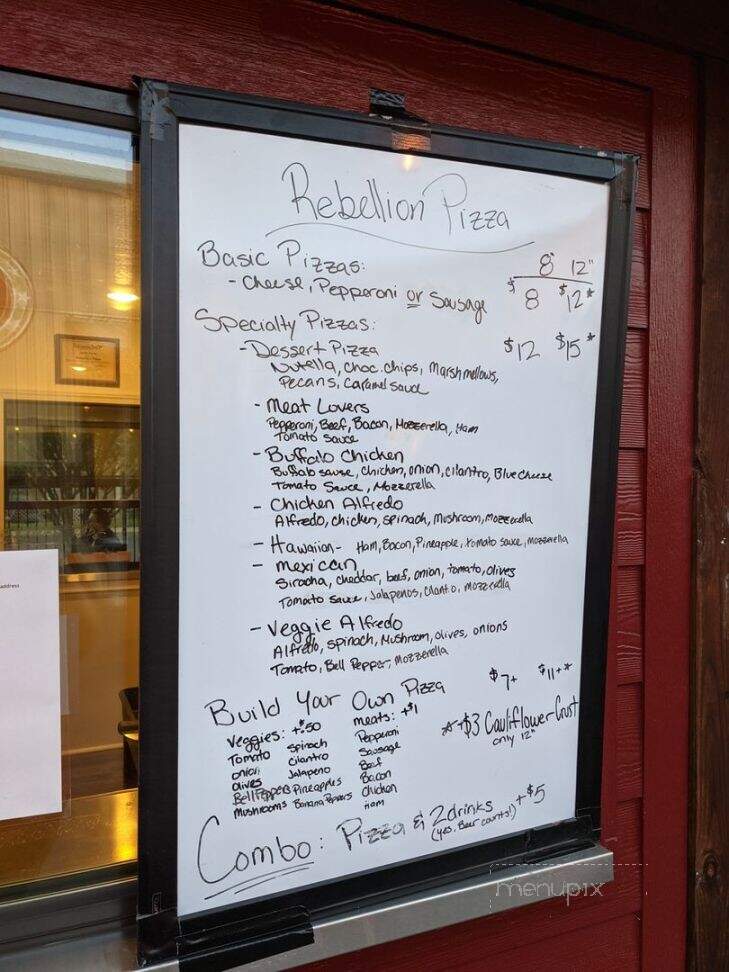 Rebellion Pizza
Basic Pizzas: 8" 12"
- Cheese, Pepperoni or Sausage $8 $12*
Specialty Pizzas: $12 $15*
- Dessert Pizza
Nutella, choc. chips, Marshmellows,
Pecans, Caramel sauce
- Meat Lovers
Pepperoni, Beef, Bacon, Mozzerella, Ham
Tomato sauce
- Buffalo Chicken
Buffalo sause, chicken, onion, cilantro, Blue Cheese
Tomato Sauce, Mozzerella
- Chicken Alfredo
Alfredo, chicken, spinach, Mushroom, mozzerella
- Hawaiian - Ham, Bacon, Pineapple, tomato sauce, mozzerella
- Mexican
Siracha, cheddar, beef, onion, tomato, olives
Tomato sauce, Jalapenos, Cilantro, mozzerella
- Veggie Alfredo
Alfredo, spinach, Mushroom, olives, onions
Tomato, Bell Pepper, mozzerella
Build Your Own Pizza $7+ $11+*
Veggies: +$.50 meats: +$1
Tomato spinach Pepperoni
onion cilantro Sausage
olives Jalapeno Beef
Bell Peppers Pineapples Bacon
Mushrooms Banana Peppers Chicken
Ham
*+$3 Cauliflower Crust
only 12"
Combo: Pizza & 2 drinks +$5
(yes. Beer counts!)
address
menupix